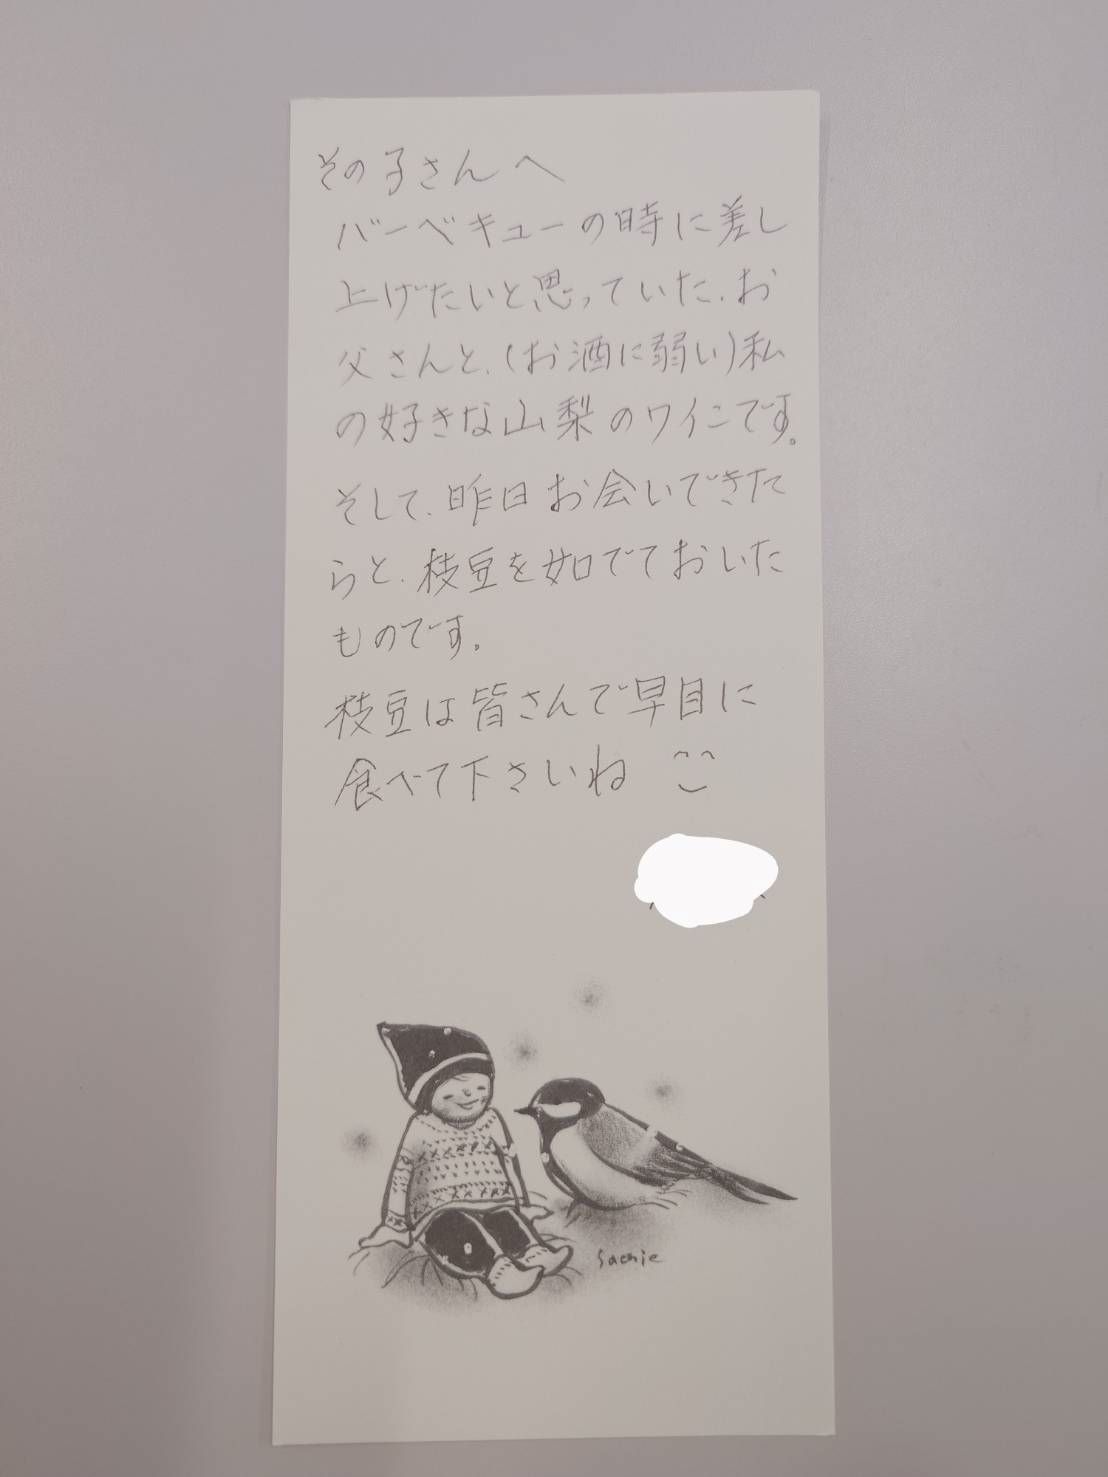 その子さんへ
バーベキューの時に差し
上げたいと思っていた、お
父さんと、(お酒に弱い)私
の好きな山梨のワインです。
そして、昨日お会いできた
らと、枝豆を茹でておいた
ものです。
枝豆は皆さんで早目に
食べて下さいね
Sachie